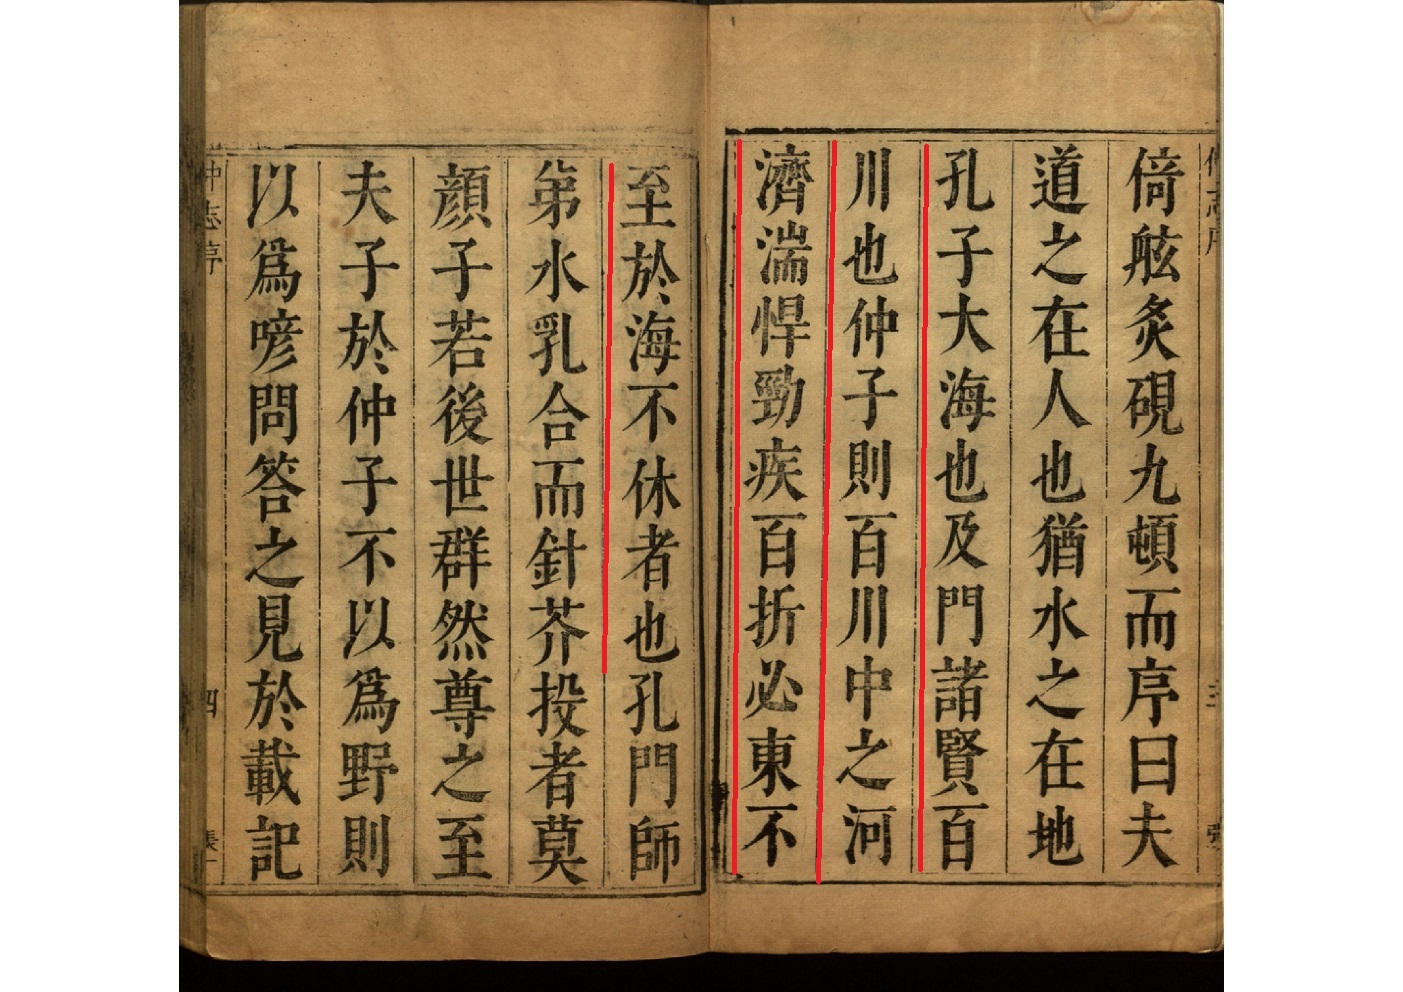 倚舷炙硯九頓而序曰夫
道之在人也猶水之在地
孔子大海也及門諸賢百
川也仲子則百川中之河
濟湍悍勁疾百折必東不
至於海不休者也孔門師
弟水乳合而針芥投者莫
顔子若後世群然尊之至
夫子於仲子不以爲野則
以爲喭問答之見於載記
仲志序
四